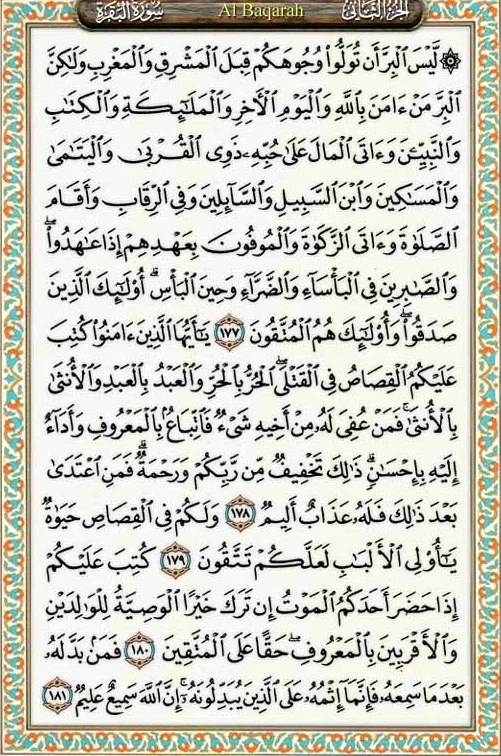 سُورَةُ البَقَرَةِ Al Baqarah الجُزْءُ الثَّانِي
۞ لَّيْسَ ٱلْبِرَّ أَن تُوَلُّوا۟ وُجُوهَكُمْ قِبَلَ ٱلْمَشْرِقِ وَٱلْمَغْرِبِ وَلَٰكِنَّ
ٱلْبِرَّ مَنْ ءَامَنَ بِٱللَّهِ وَٱلْيَوْمِ ٱلْءَاخِرِ وَٱلْمَلَٰٓئِكَةِ وَٱلْكِتَٰبِ
وَٱلنَّبِيِّۦنَ وَءَاتَى ٱلْمَالَ عَلَىٰ حُبِّهِۦ ذَوِى ٱلْقُرْبَىٰ وَٱلْيَتَٰمَىٰ
وَٱلْمَسَٰكِينَ وَٱبْنَ ٱلسَّبِيلِ وَٱلسَّآئِلِينَ وَفِى ٱلرِّقَابِ وَأَقَامَ
ٱلصَّلَوٰةَ وَءَاتَى ٱلزَّكَوٰةَ وَٱلْمُوفُونَ بِعَهْدِهِمْ إِذَا عَٰهَدُوا۟ ۖ
وَٱلصَّٰبِرِينَ فِى ٱلْبَأْسَآءِ وَٱلضَّرَّآءِ وَحِينَ ٱلْبَأْسِ ۗ أُو۟لَٰٓئِكَ ٱلَّذِينَ
صَدَقُوا۟ ۖ وَأُو۟لَٰٓئِكَ هُمُ ٱلْمُتَّقُونَ ١٧٧ يَٰٓأَيُّهَا ٱلَّذِينَ ءَامَنُوا۟ كُتِبَ
عَلَيْكُمُ ٱلْقِصَاصُ فِى ٱلْقَتْلَى ۖ ٱلْحُرُّ بِٱلْحُرِّ وَٱلْعَبْدُ بِٱلْعَبْدِ وَٱلْأُنثَىٰ
بِٱلْأُنثَىٰ ۚ فَمَنْ عُفِىَ لَهُۥ مِنْ أَخِيهِ شَىْءٌ فَٱتِّبَاعٌۢ بِٱلْمَعْرُوفِ وَأَدَآءٌ
إِلَيْهِ بِإِحْسَٰنٍ ۗ ذَٰلِكَ تَخْفِيفٌ مِّن رَّبِّكُمْ وَرَحْمَةٌ ۗ فَمَنِ ٱعْتَدَىٰ
بَعْدَ ذَٰلِكَ فَلَهُۥ عَذَابٌ أَلِيمٌ ١٧٨ وَلَكُمْ فِى ٱلْقِصَاصِ حَيَوٰةٌ
يَٰٓأُو۟لِى ٱلْأَلْبَٰبِ لَعَلَّكُمْ تَتَّقُونَ ١٧٩ كُتِبَ عَلَيْكُمْ
إِذَا حَضَرَ أَحَدَكُمُ ٱلْمَوْتُ إِن تَرَكَ خَيْرًا ٱلْوَصِيَّةُ لِلْوَٰلِدَيْنِ
وَٱلْأَقْرَبِينَ بِٱلْمَعْرُوفِ ۖ حَقًّا عَلَى ٱلْمُتَّقِينَ ١٨٠ فَمَنۢ بَدَّلَهُۥ
بَعْدَ مَا سَمِعَهُۥ فَإِنَّمَآ إِثْمُهُۥ عَلَى ٱلَّذِينَ يُبَدِّلُونَهُۥٓ ۚ إِنَّ ٱللَّهَ سَمِيعٌ عَلِيمٌ ١٨١